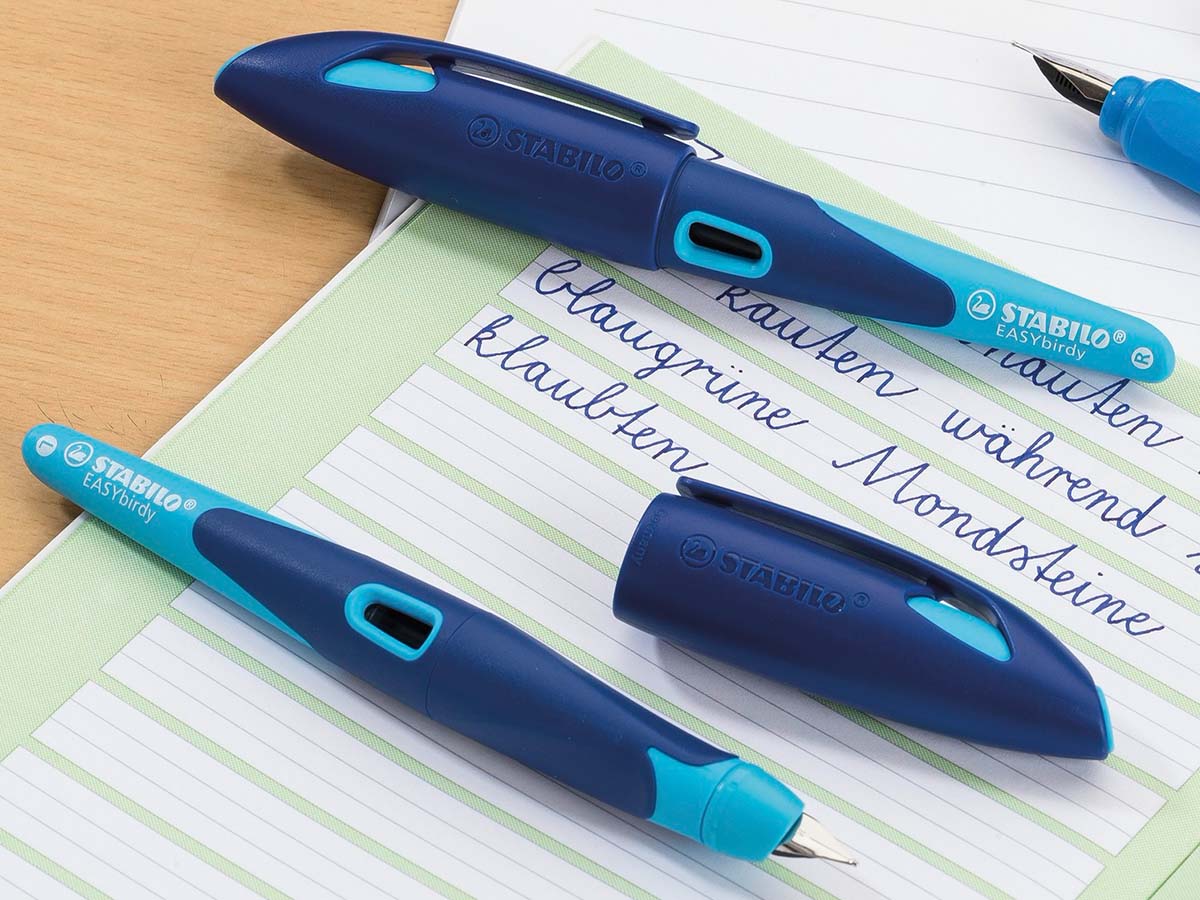 STABILO®
STABILO®
EASYbirdy
R
kauten
blaugrüne während
klaubten Mondsteine
L
STABILO®
EASYbirdy
Germany
STABILO®